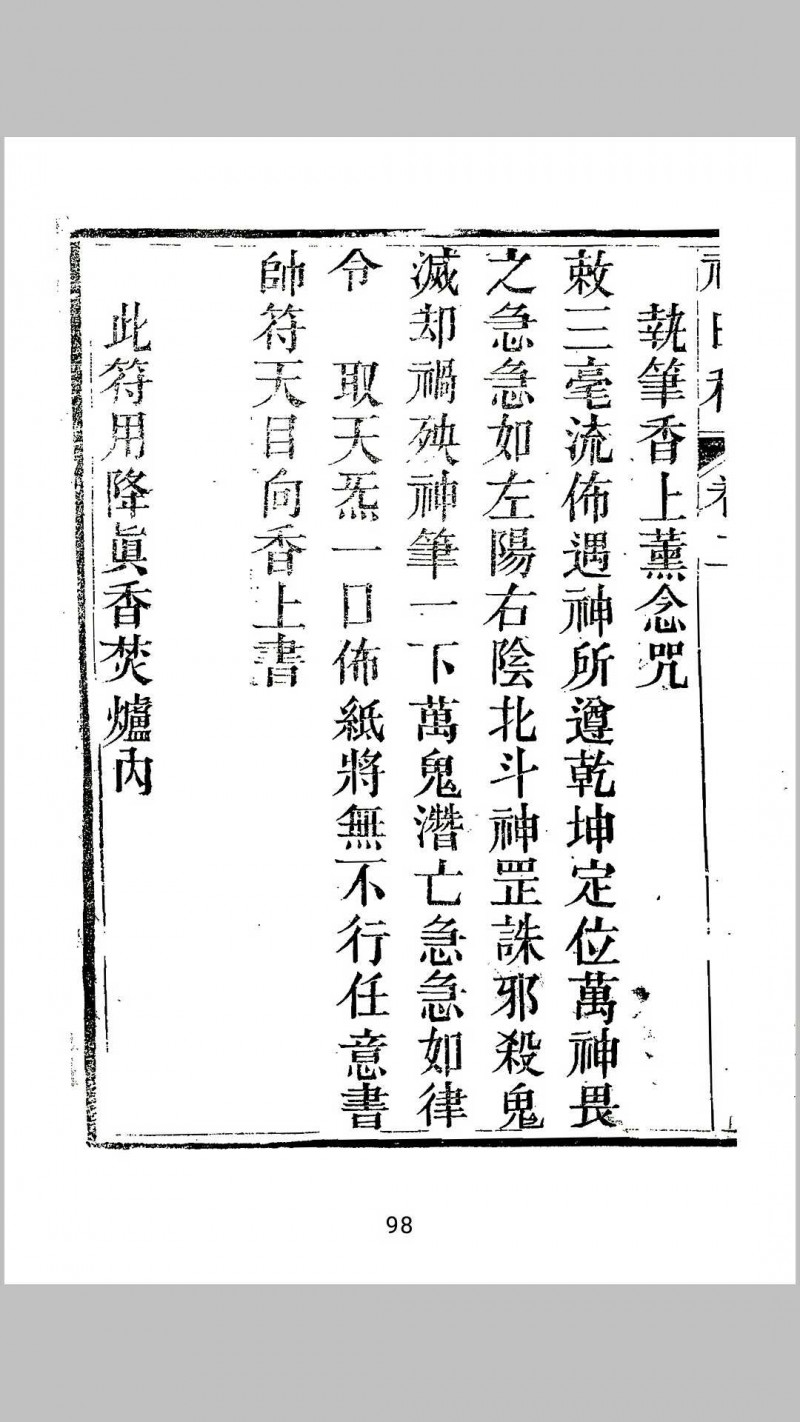 卷二
執筆香上薰念咒
敕三毫流佈遇神所遵乾坤定位萬神畏
之急急如左陽右陰北斗神罡誅邪殺鬼
滅却禍殃神筆一下萬鬼潛亡急急如律
令 取天炁一口佈紙將無不行任意書
帥符天目向香上書
此符用降眞香焚爐內
98